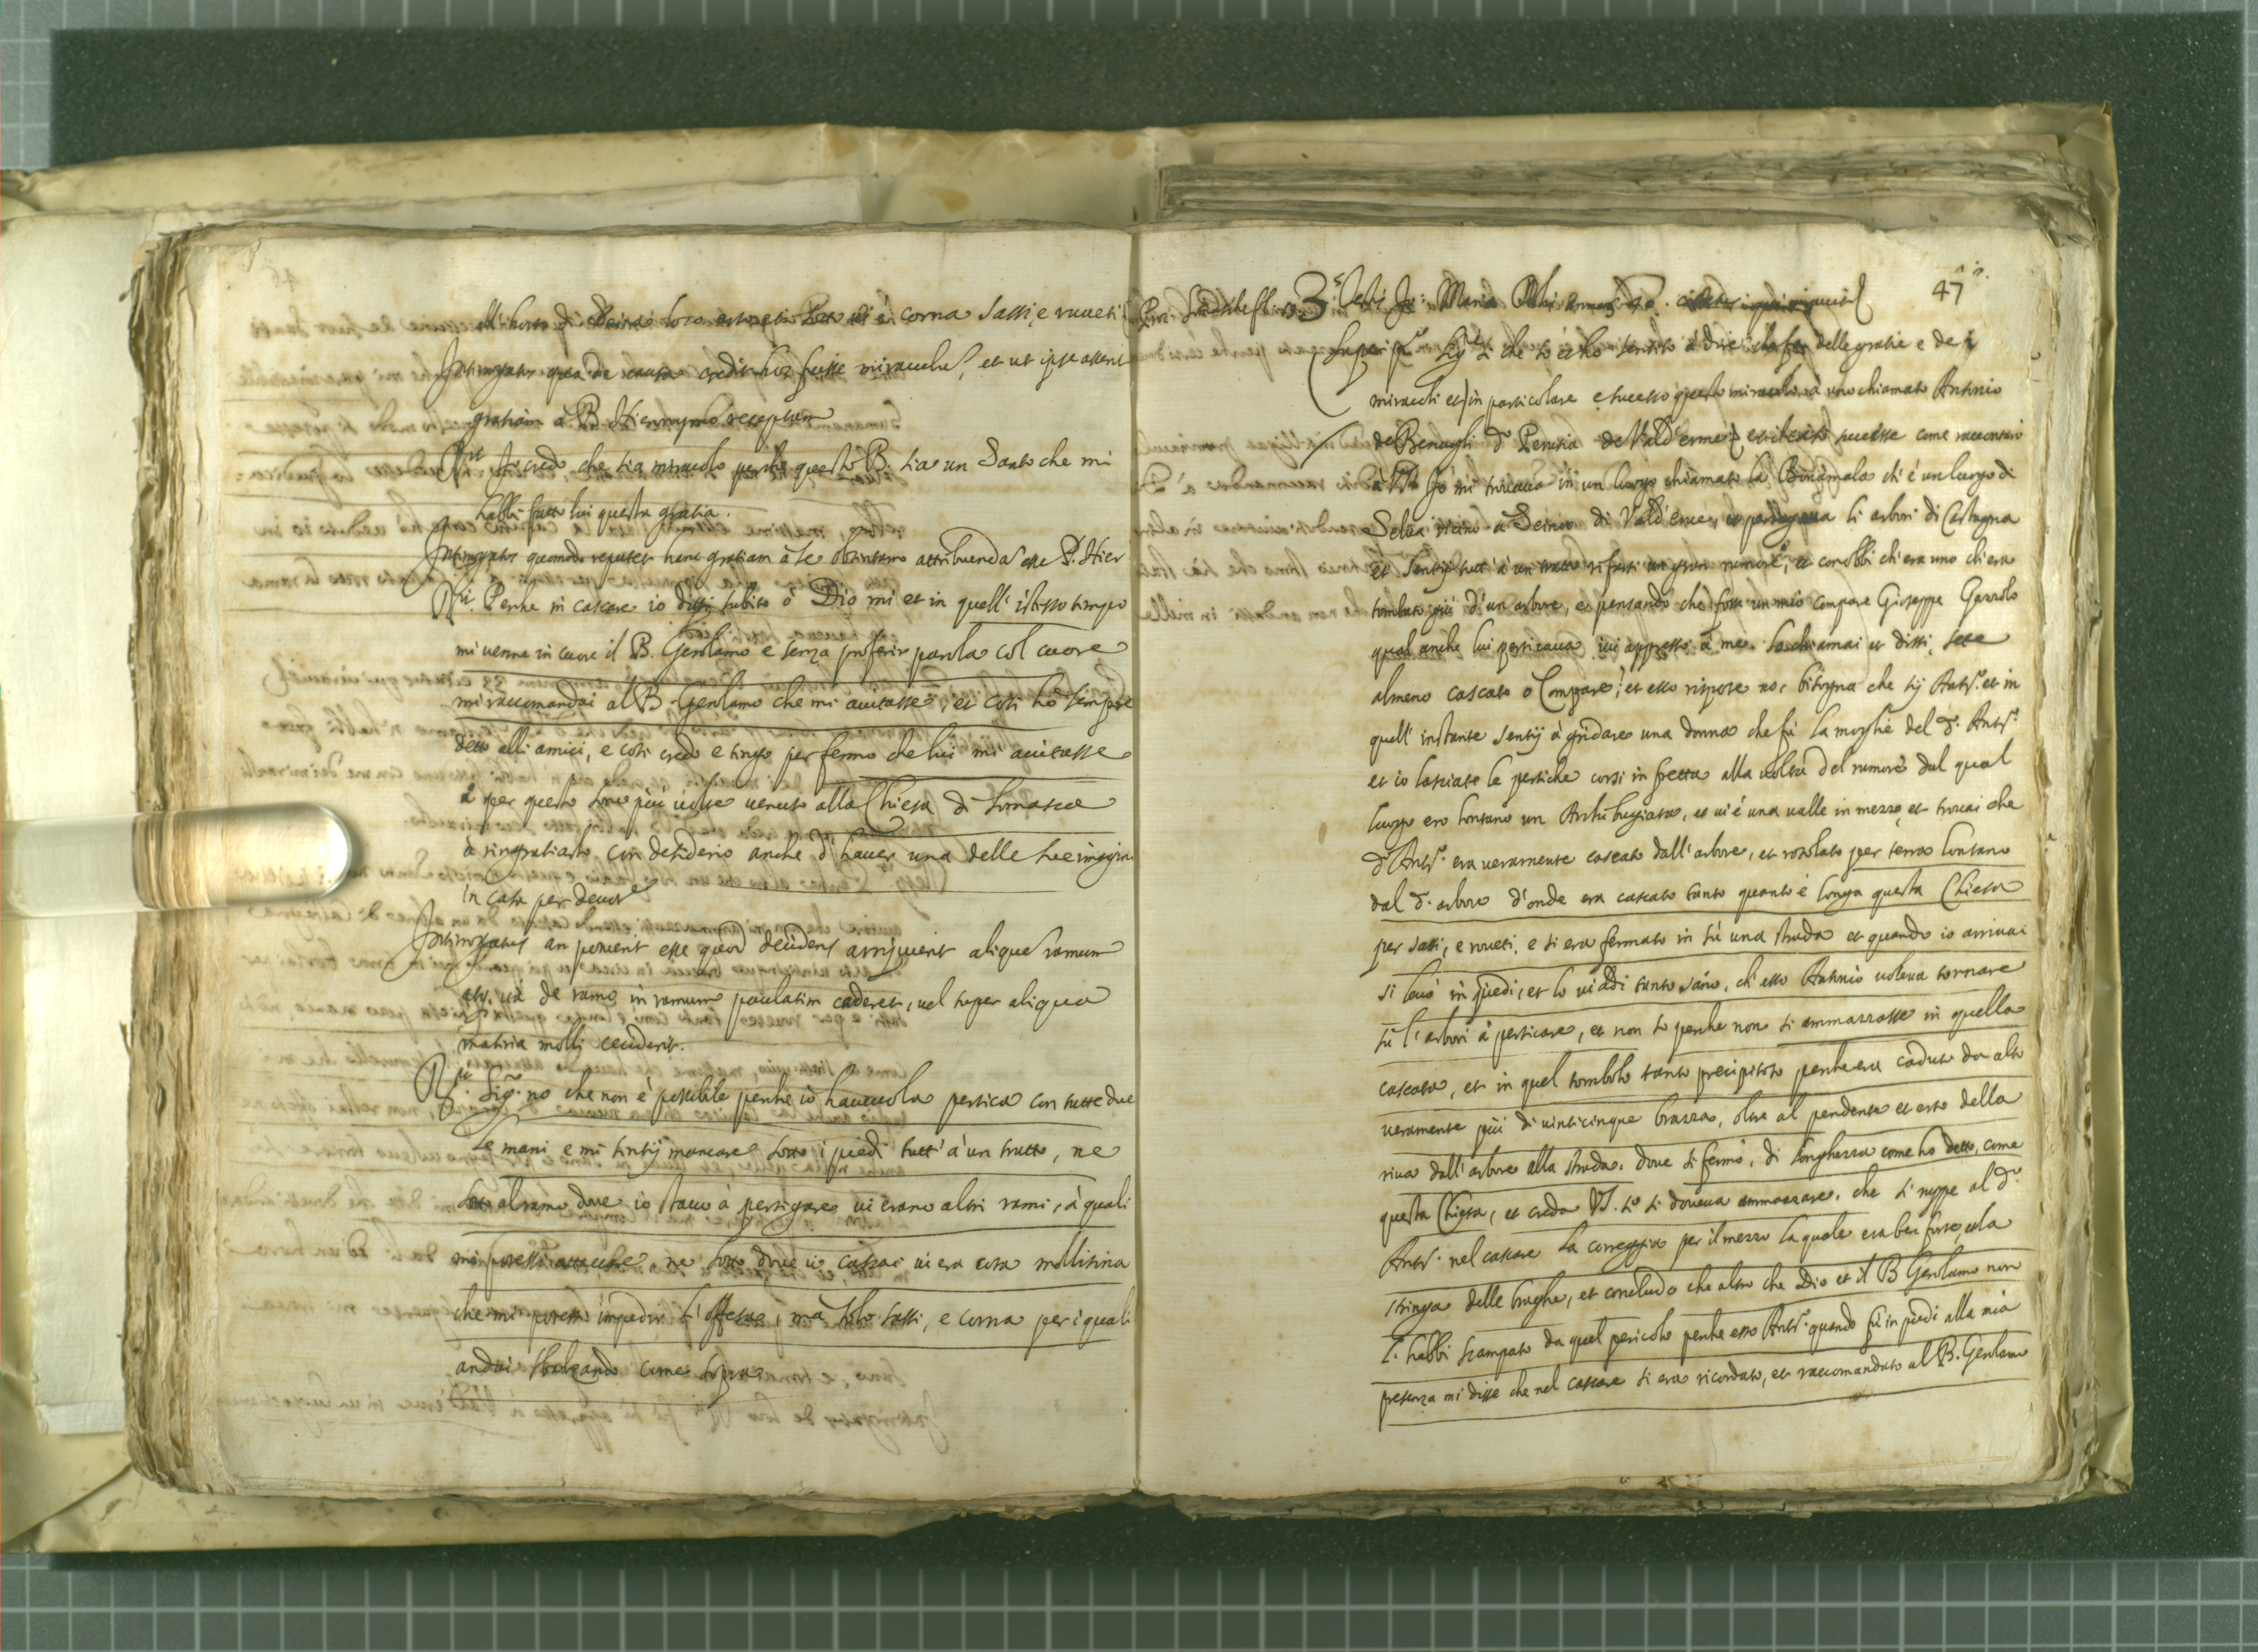 corna sassi, e rueti
Interrogatus qua de causa credit hoc fuisse miraculu, et ut ipse asserit
gratiam à B. Hieronymo receptam
Rit Io credo che sia miracolo perche questo B. sia un Santo che mi
habbi fatto lui questa gratia.
Interrogatus quomodo reputet hanc gratiam à se obtentam attribuenda esse B. Hier
Rit. Perche in cascare io dissi subito ò Dio mi et in quell' istesso tempo
mi venne in cuore il B. Gerolamo e senza proferir parola col cuore
mi raccomandai al B. Gerolamo che mi aiutasse, et così hò sempre
detto alli amici, e così credo e tengo per fermo che lui mi aiutasse
e per questo sono più volte venuto alla Chiesa di Somasca
à ringratiarlo con desiderio anche d' haver una delle sue imagini
in casa per devote
Interrogatus an potuerit esse quod decidens arripuerit alique ramum
et ità de ramo in ramum paulatim caderet, vel super aliqua
materia molli ceciderit.
Rit. Sigr. no che non è possibile perche io havevo la pertica con tutte due
le mani e mi sentij mancare sotto i piedi tutt' à un tratto, ne
sotto al ramo dove io stavo à pertigare vi erano altri rami, à quali
mi potessi attaccare, ne sotto dove io cascai vi era cosa mollisina
che mi potesse impedir l' offesa, mà solo sassi, e corna per i quali
andai sbalzando come sopra
47
3s Testis Jo: Maria annor 40.
Super po Sijt che io ho sentito à dire che fa delle gratie e de i
miracoli et in particolare è successo questo miracolo à uno chiamato Antonio
de Benagli di Perusia de Vald'erme successe come raccontarò
à V.S. Io mi trovava in un luogo chiamato la Binamala ch' è un luogo di
Selva vicino à di Vald'erme, e li arbori di Castagna
et sentij tutt' à un tratto à farsi un gran rumore, et conobbi ch' era uno ch' era
tombato giù d' un arbore, e pensando che fosse un mio compare Gioseppe Gazzolo
qual anche lui perticava ivi appresso à me. lo chiamai et dissi, sete
almeno cascato o Compare! et esso rispose no, bisogna che sij Anto. et in
quell' instante sentij à gridare una donna che fù la moglie del d. Anto.
et io lasciate le pertiche corsi in fretta alla volta del rumore dal qual
luogo ero lontano un Archibugiata, et vi è una valle in mezzo et trovai che
d. Anto. era veramente cascato dall' arbore, et rotolato per terra lontano
dal d. arbore d'onde era cascato tanto quanto è longa questa Chiesa
per sassi, e roveti, e si era fermato in sù una strada et quando io arrivai
si levò in piedi, et lo viddi tanto sano, ch' esso Antonio voleva tornare
sù l' arbori à perticare, et non so perche non si ammazzasse in quella
cascata, et in quel tombolo tanto precipitoso perche era caduto da alto
veramente più di vinticinque brazza, oltre al pendente et erto della
riva dall' arbore alla strada, dove si fermò, di longhezza come ho detto, come
questa Chiesa, et creda VS. se si doveva ammazzare, che si ruppe al d.
Anto. nel cascare la correggia per il mezzo la quale era ben forte, ò la
stringa delle braghe, et concludo che altro che Dio et il B. Gerolamo non
l' habbi scampato da quel pericolo perche esso Anto. quando fù in piedi alla mia
presenza mi disse che nel cascare si era ricordato, et raccomandato al B. Gerolamo